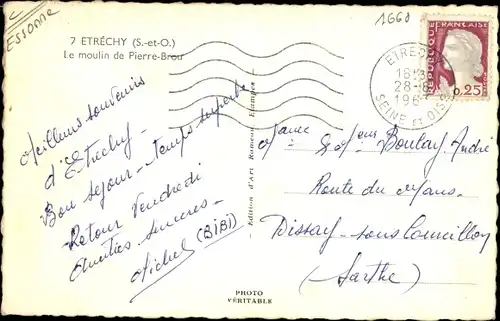 Essonne
1668
7 ETRÉCHY (S.-et-O.)
Le moulin de Pierre-Brou
ETRECHY
18H
28-8
196
SEINE ET OISE
REPUBLIQUE FRANÇAISE
0,25
Meilleurs souvenirs
d'Etréchy -
Bon séjour - temps superbe
Retour Vendredi
Amitiés sincères -
Michel (BIBI)
Edition d'Art Romeau Etampes
PHOTO
VÉRITABLE
Boulay André
Route du Mans
Dissay-sous-Courcillon
(Sarthe)